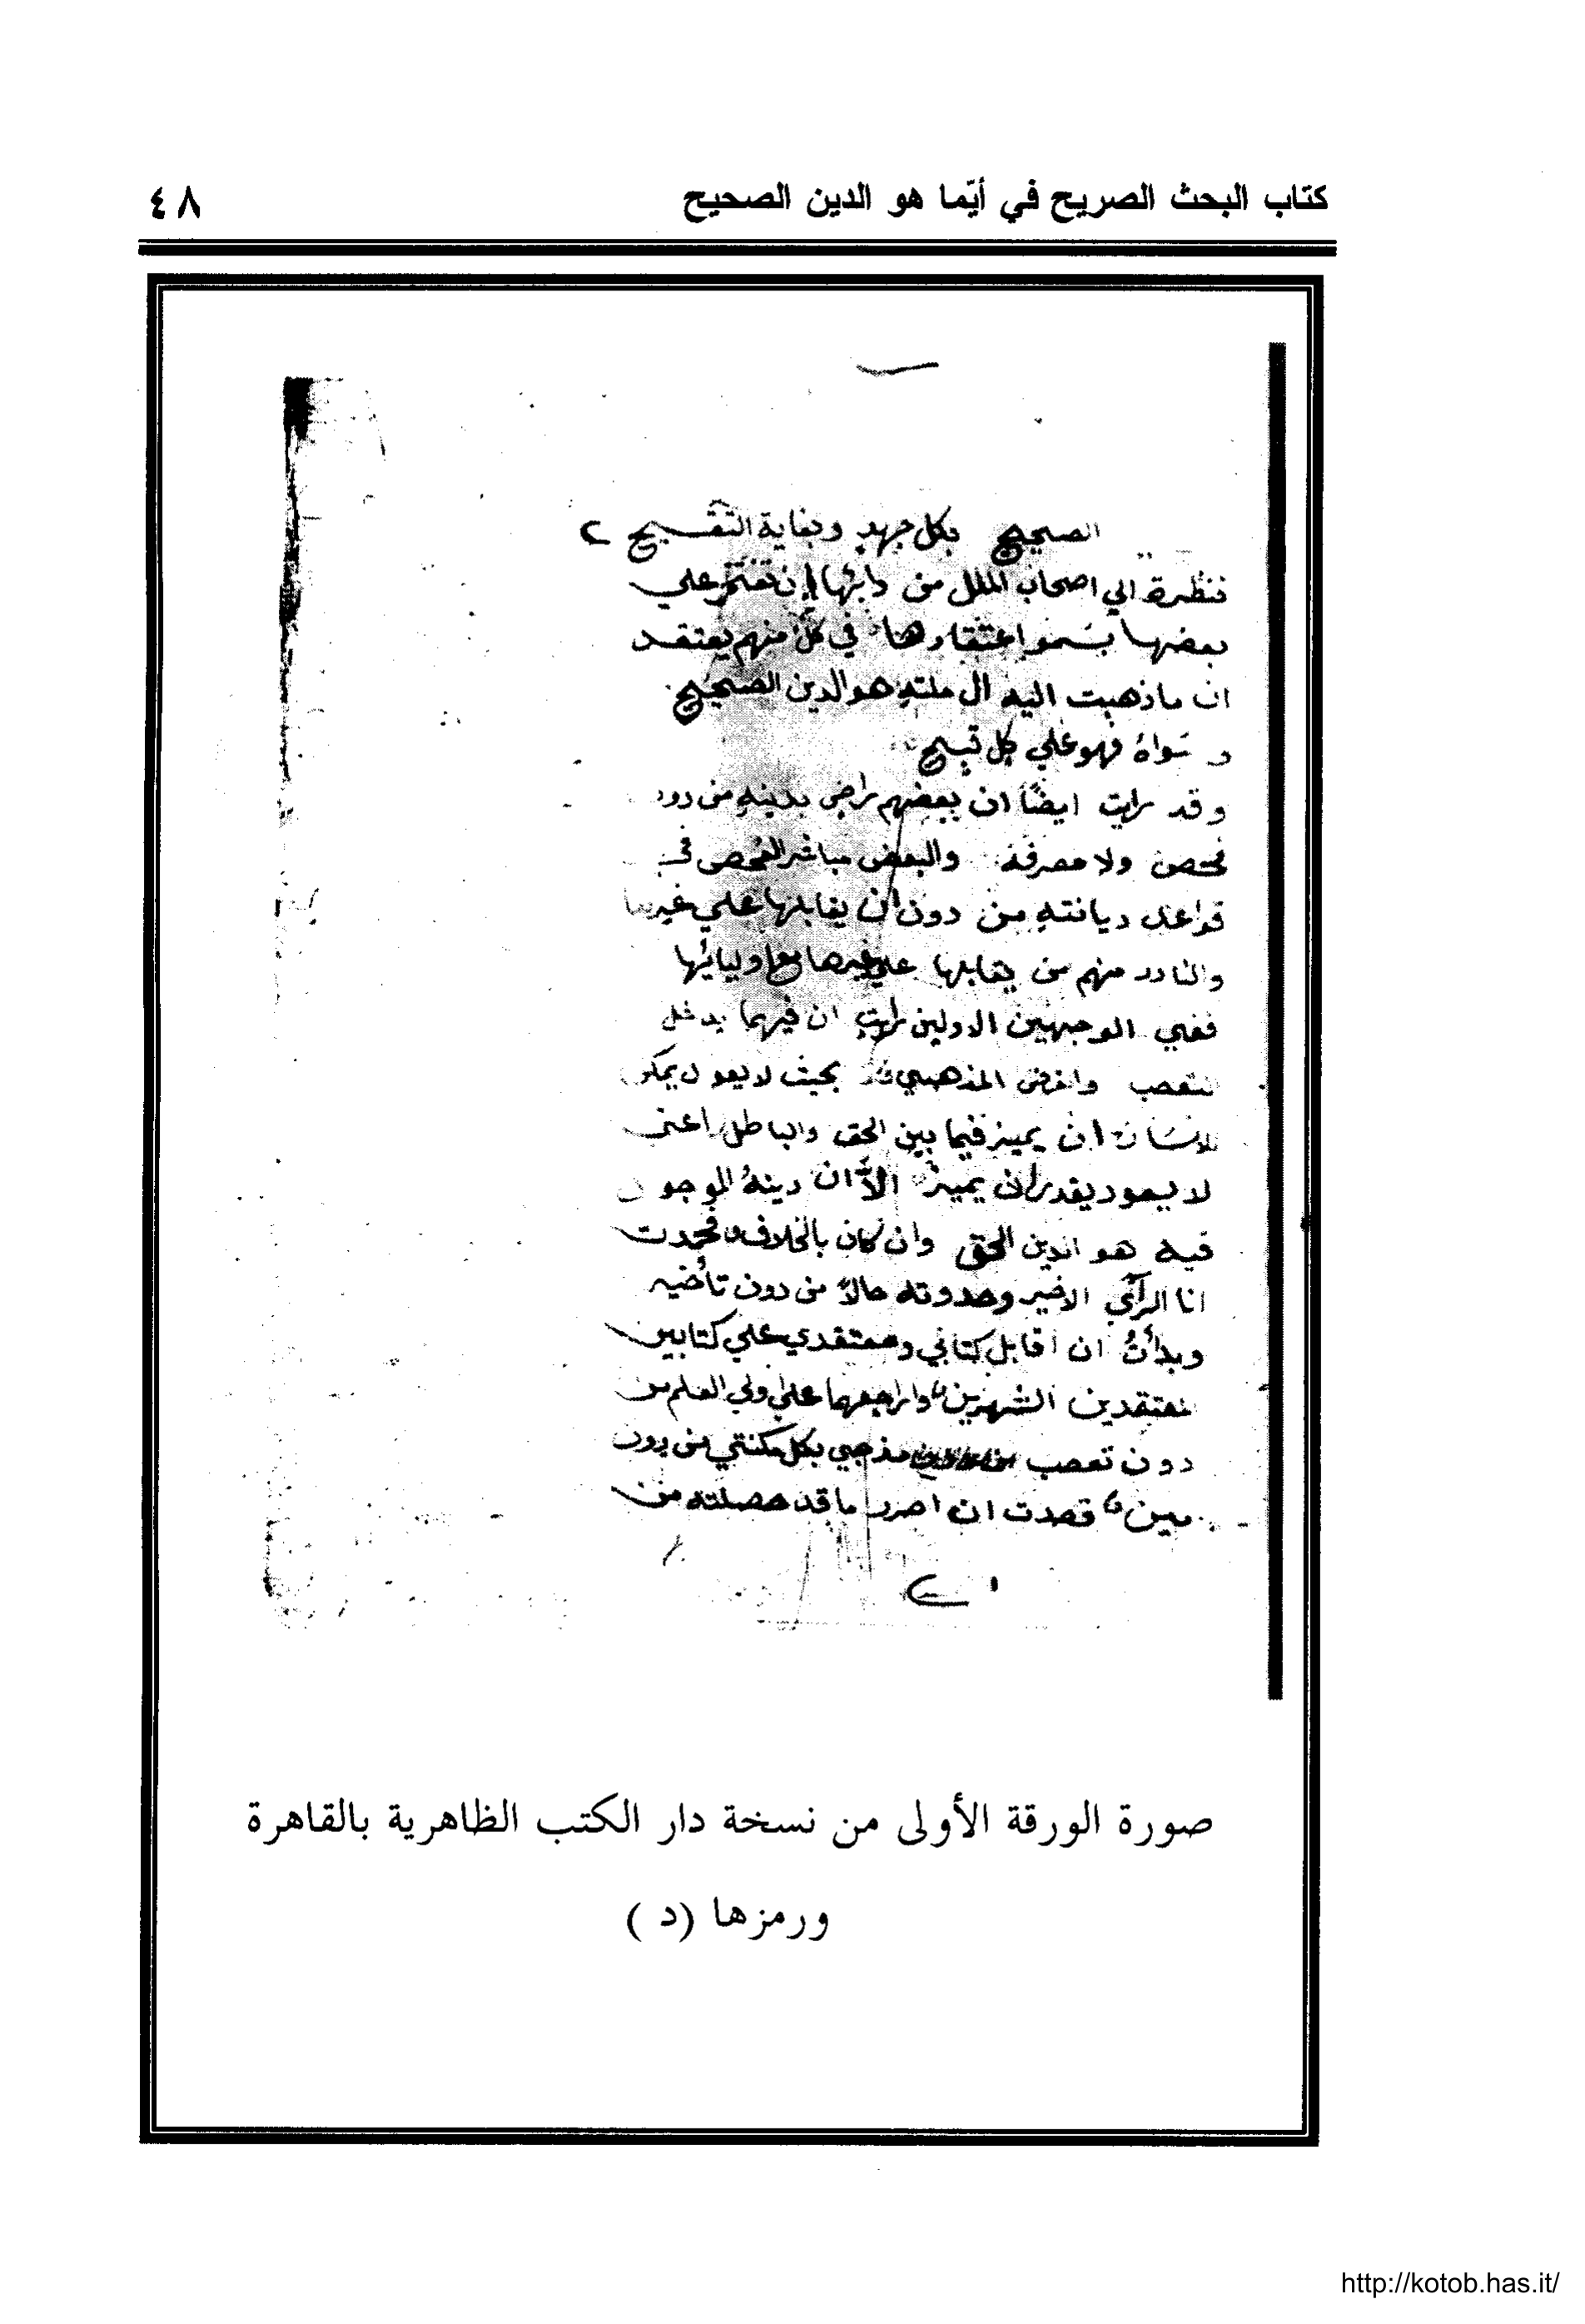 كتاب البحث الصريح في أيّما هو الدين الصحيح
٤٨
الصحيح بكل جهد وبغاية التنقيح
فنظرة الي اصحاب الملل من دابها ان تفتخر علي
بعضها بسمو اعتقادها في كل منهم يعتقد
ان ماذهبت اليه ال ملته هو الدين الصحيح
و سواهُ فهو علي كل قبيح
وقد رايت ايضًا ان بعضهم راضي بدينه من دون
فحص ولا معرفة والبعض مباشر الفحص في
قواعد ديانته من دون ان يقابلها علي غيرها
والنادر منهم من يقابلها علي غيرها مع اوليائها
ففي الوجهين الاولين رايت ان فيهما يدخل
التعصب والغرض المذهبي بحيث لا يعود يمكن
للانسان ان يميز فيما بين الحق والباطل اعني
لا يعود يقدر ان يميز الاّ ان دينهُ الموجود
فيه هو الدين الحق وان كان بالخلاف
انا الرأي الاخير وحدوته حالاً من دون
وبدأتُ ان اقابل كتابي ومعتقدي علي كتابين
معتقدين الشهيرين واراجعهما علي اولي العلم من
دون تعصب مذهبي بكل مكنتي من دون
مين قصدت ان احرر ما قد حصلته من
صورة الورقة الأولى من نسخة دار الكتب الظاهرية بالقاهرة
ورمزها (د )
http://kotob.has.it/